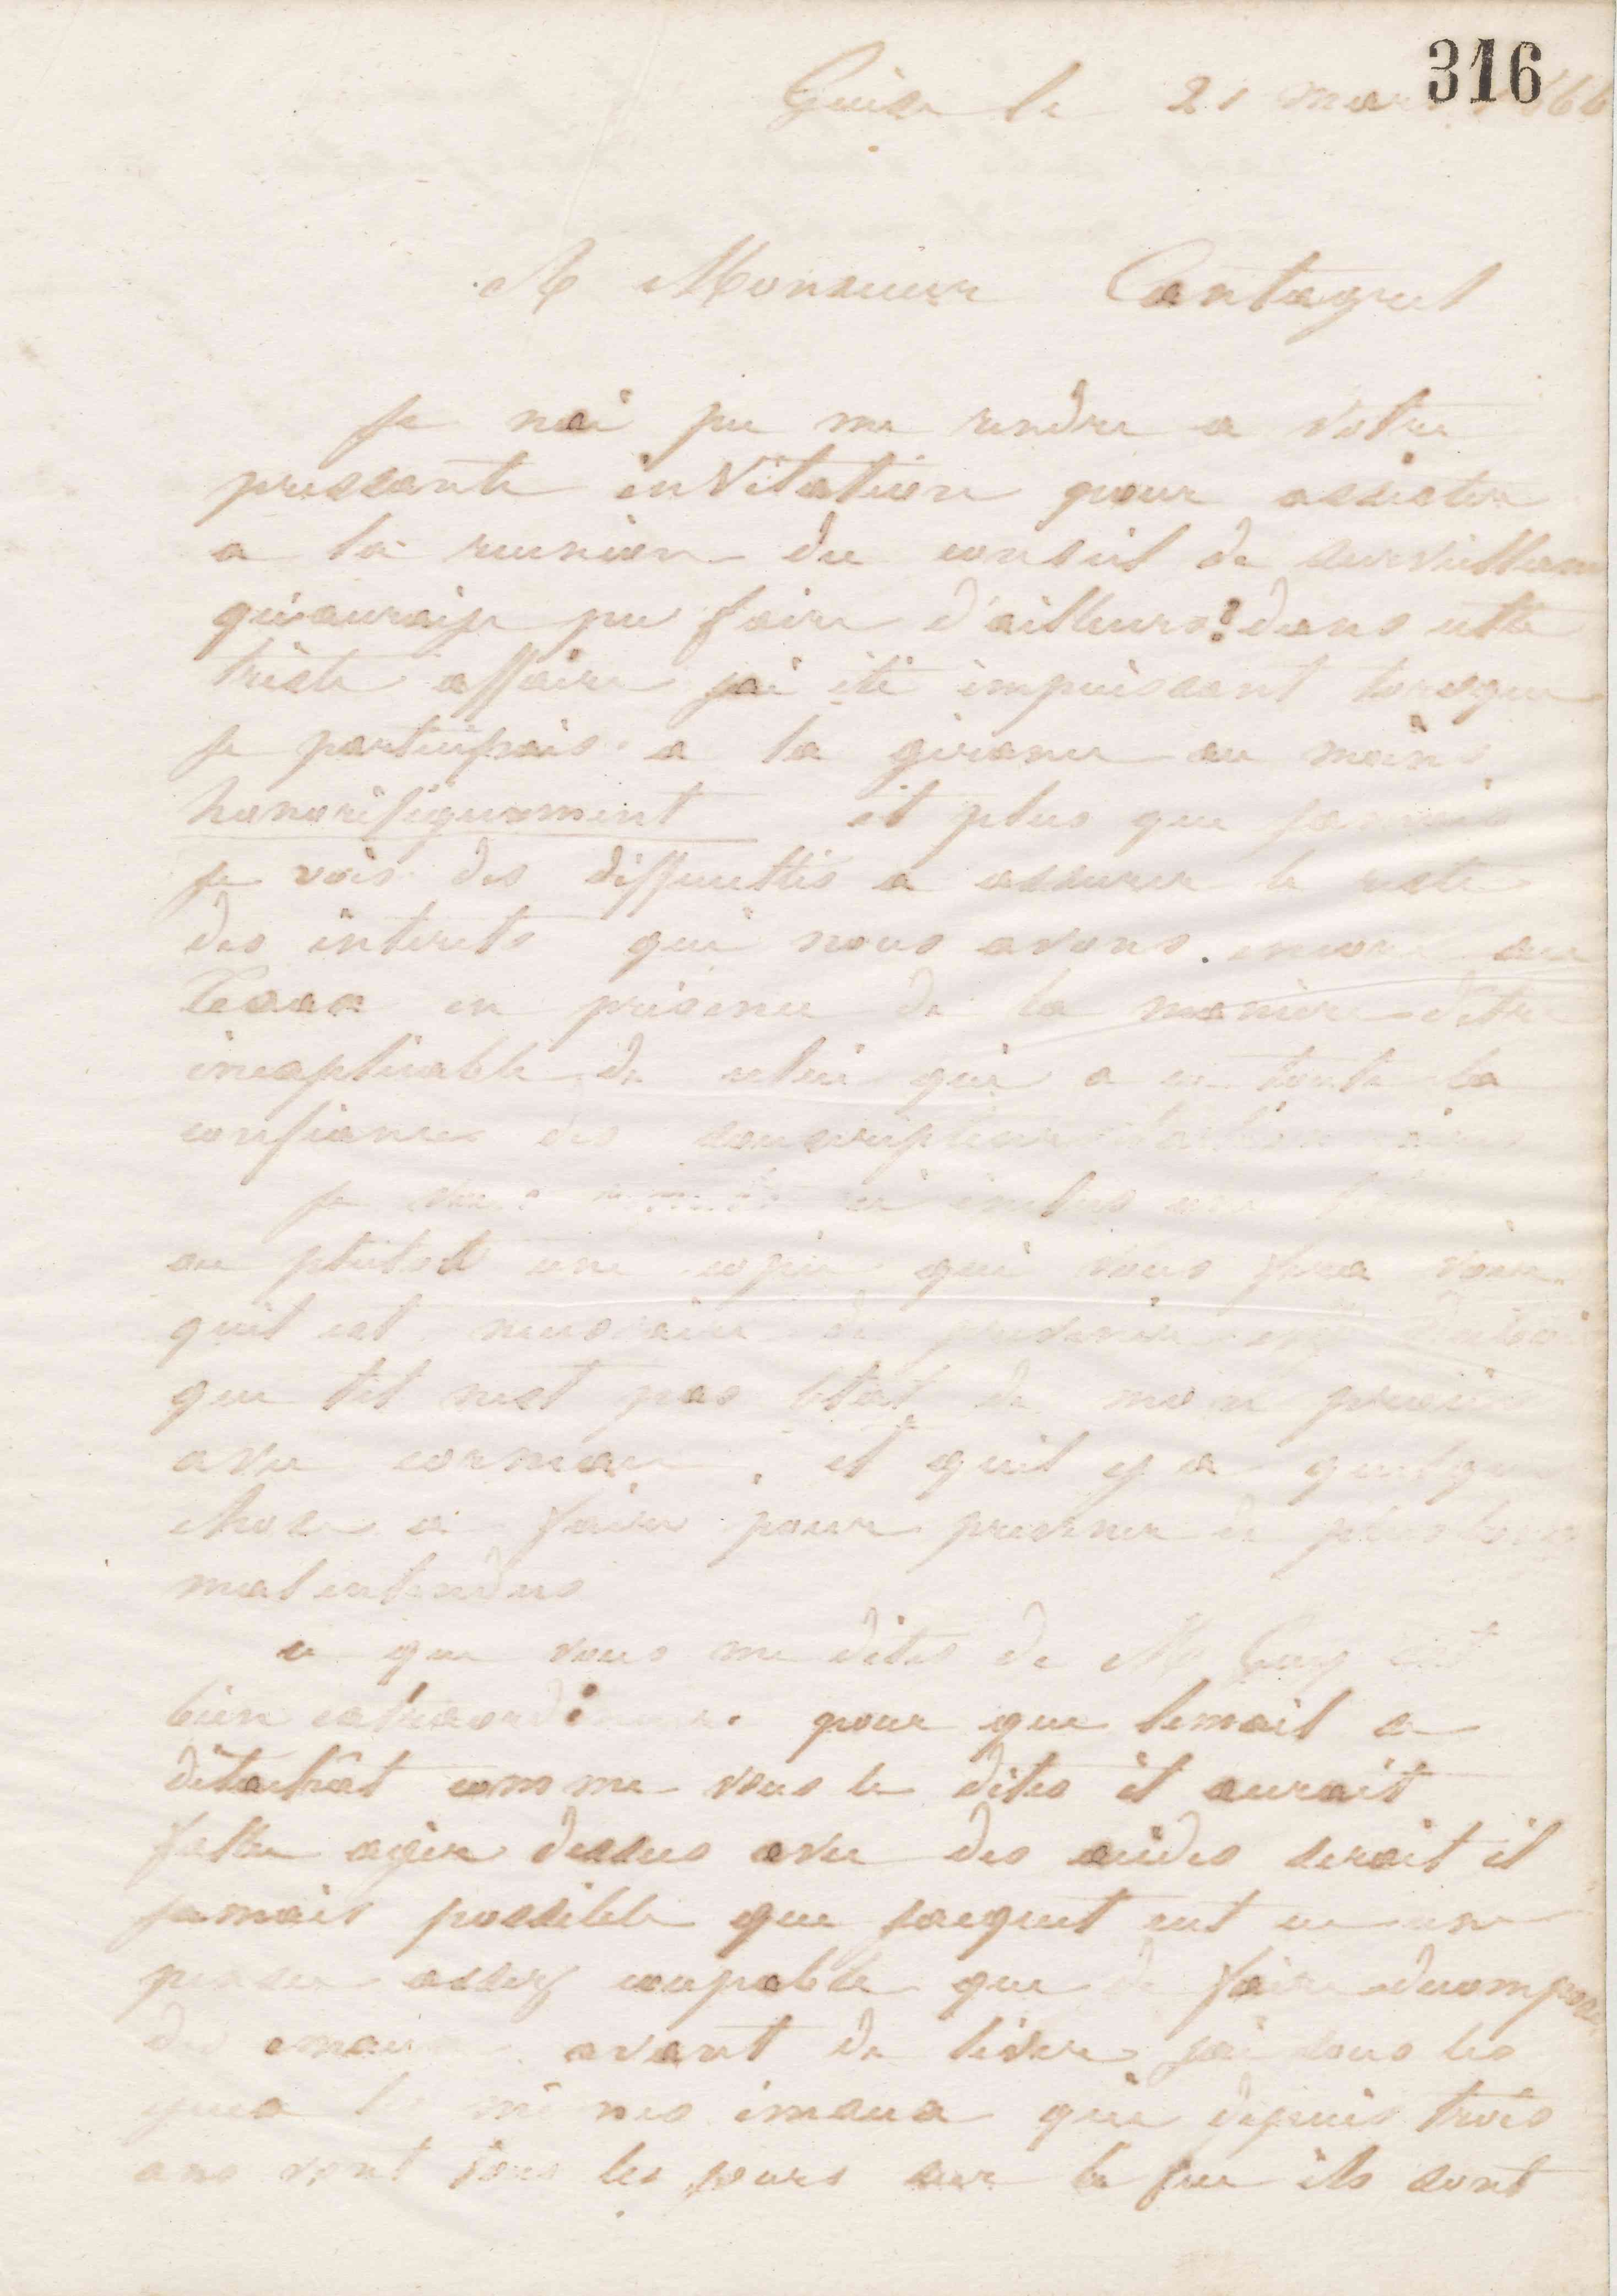 316
Guise le 21 mars 1866
A Monsieur Cantagrel
je nai pu me rendre a votre
pressante invitation pour assister
a la reunion du conseil de surveillance
quiauraije pu faire d'ailleurs? dans cette
triste affaire jai été impuissant lorsque
je participais a la gérance au moins
honorifiquement et plus que jamais
je vois des difficultés a assurer le reste
des interets que nous avons encore au
Texas en présence de la maniere detre
inexplicable de celui qui a eu toute la
confiance des souscripteurs
je ci inclus une
ou plutot une copie qui vous fera voir
quil est necessaire de prevenir
que tel nest pas letat de mon
avec et quil y a quelque
chose a faire pour prevenir de plus longs
malentendus
ce que vous me dites de M Guy est
bien extraordinaire pour que lemail se
détachât comme vous le dites il aurait
fallu agir dessus avec des acides serait il
jamais possible que jacquet eut eu une
pensee assez coupable que de faire decomposer
des emaux avant de livrer jai sous les
yeux les mêmes emaux qui depuis trois
ans vont tous les jours sur le feu ils sont